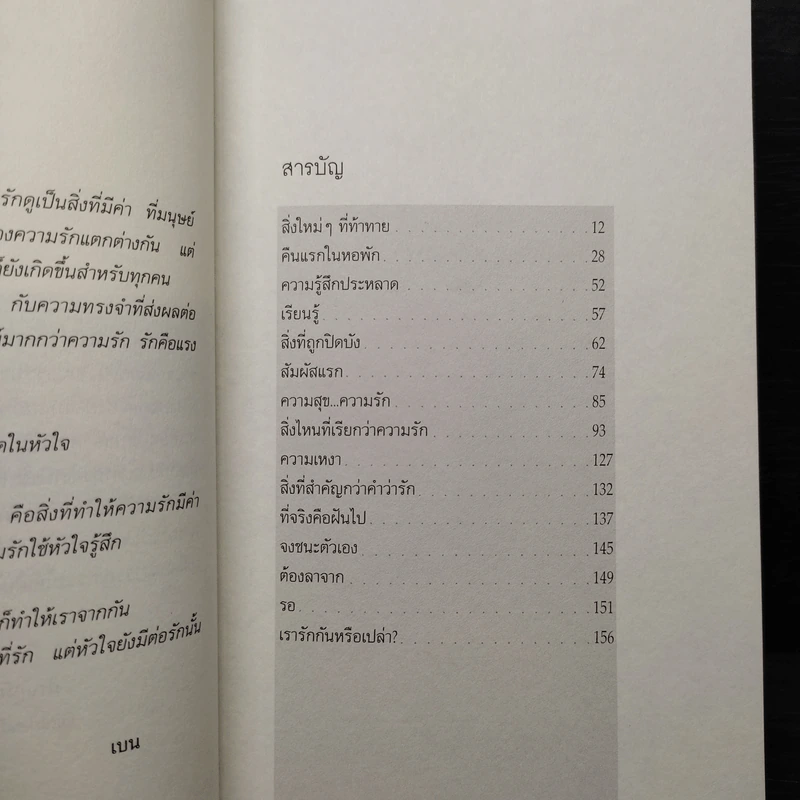 รักดูเป็นสิ่งที่มีค่า ที่มนุษย์
ความรักแตกต่างกัน แต่
ยังเกิดขึ้นสำหรับทุกคน
กับความทรงจำที่ส่งผลต่อ
มากกว่าความรัก รักคือแรง
ในหัวใจ
คือสิ่งที่ทำให้ความรักมีค่า
รักใช้หัวใจรู้สึก
ก็ทำให้เราจากกัน
ที่รัก แต่หัวใจยังมีต่อรักนั้น
เบน
สารบัญ
สิ่งใหม่ๆ ที่ท้าทาย 12
คืนแรกในหอพัก 28
ความรู้สึกประหลาด 52
เรียนรู้ 57
สิ่งที่ถูกปิดบัง 62
สัมผัสแรก 74
ความสุข...ความรัก 85
สิ่งไหนที่เรียกว่าความรัก 93
ความเหงา 127
สิ่งที่สำคัญกว่าคำว่ารัก 132
ที่จริงคือฝันไป 137
จงชนะตัวเอง 145
ต้องลาจาก 149
รอ 151
เรารักกันหรือเปล่า? 156